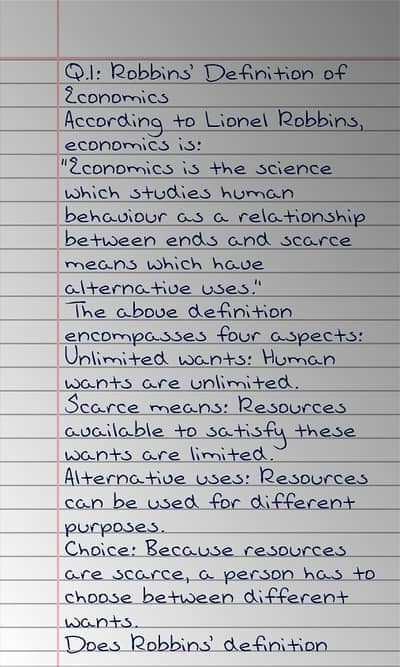 Q.1: Robbins' Definition of
Economics
According to Lionel Robbins,
economics is:
"Economics is the science
which studies human
behaviour as a relationship
between ends and scarce
means which have
alternative uses."
The above definition
encompasses four aspects:
Unlimited wants: Human
wants are unlimited.
Scarce means: Resources
available to satisfy these
wants are limited.
Alternative uses: Resources
can be used for different
purposes.
Choice: Because resources
are scarce, a person has to
choose between different
wants.
Does Robbins' definition